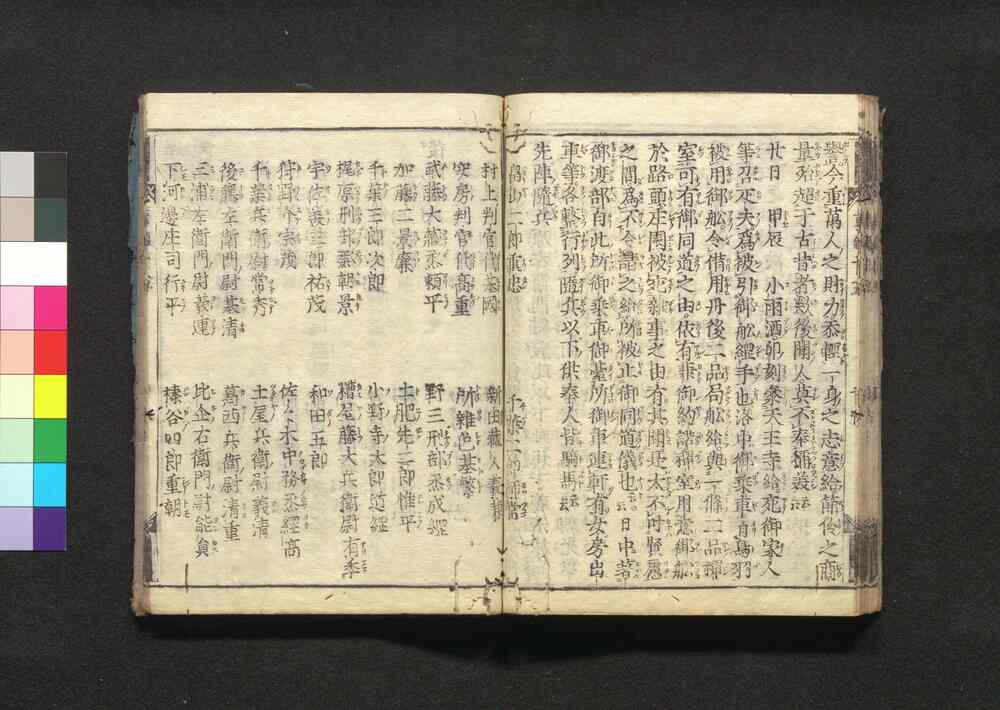 誉今重萬人之財力忝輕一身之志意給節儉之商
量殆超于古昔者歟後聞人莫不奉稱美云云
廿日 甲辰 小雨洒卯刻參天王寺給宛御家人
等召疋夫爲被引御舩綱手也洛中御乘車自鳥羽
被用御舩令借用丹後二品局舩給與一條二品禪
室可有御同道之由依有兼御約諾禪室用意御舩
於路頭庄園被宛雜事之由有其聞是太不可賢慮
之間爲不令請之給所被止御同道儀也云云日中著
御渡部自此所御乘車御臺所御車連軒有女房出
車等各聯行列隨兵以下供奉人皆騎馬云云
先陣隨兵
畠山二郎重忠 千葉二郎師常
村上判官代基國 新田藏人義兼
安房判官代高重 所雜色基繁
武藤大藏丞頼平 野三刑部丞成經
加藤二景廉 土肥先二郎惟平
千葉三郎次郎 小野寺太郎道經
梶原刑部丞朝景 糟屋藤大兵衛尉有季
宇佐美三郎祐茂 和田五郎
狩野介宗茂 佐々木中務丞經高
千葉兵衛尉常秀 土屋兵衛尉義清
後藤左衛門尉基清 葛西兵衛尉清重
三浦左衛門尉義連 比企右衛門尉能員
下河邊庄司行平 榛谷四郎重朝